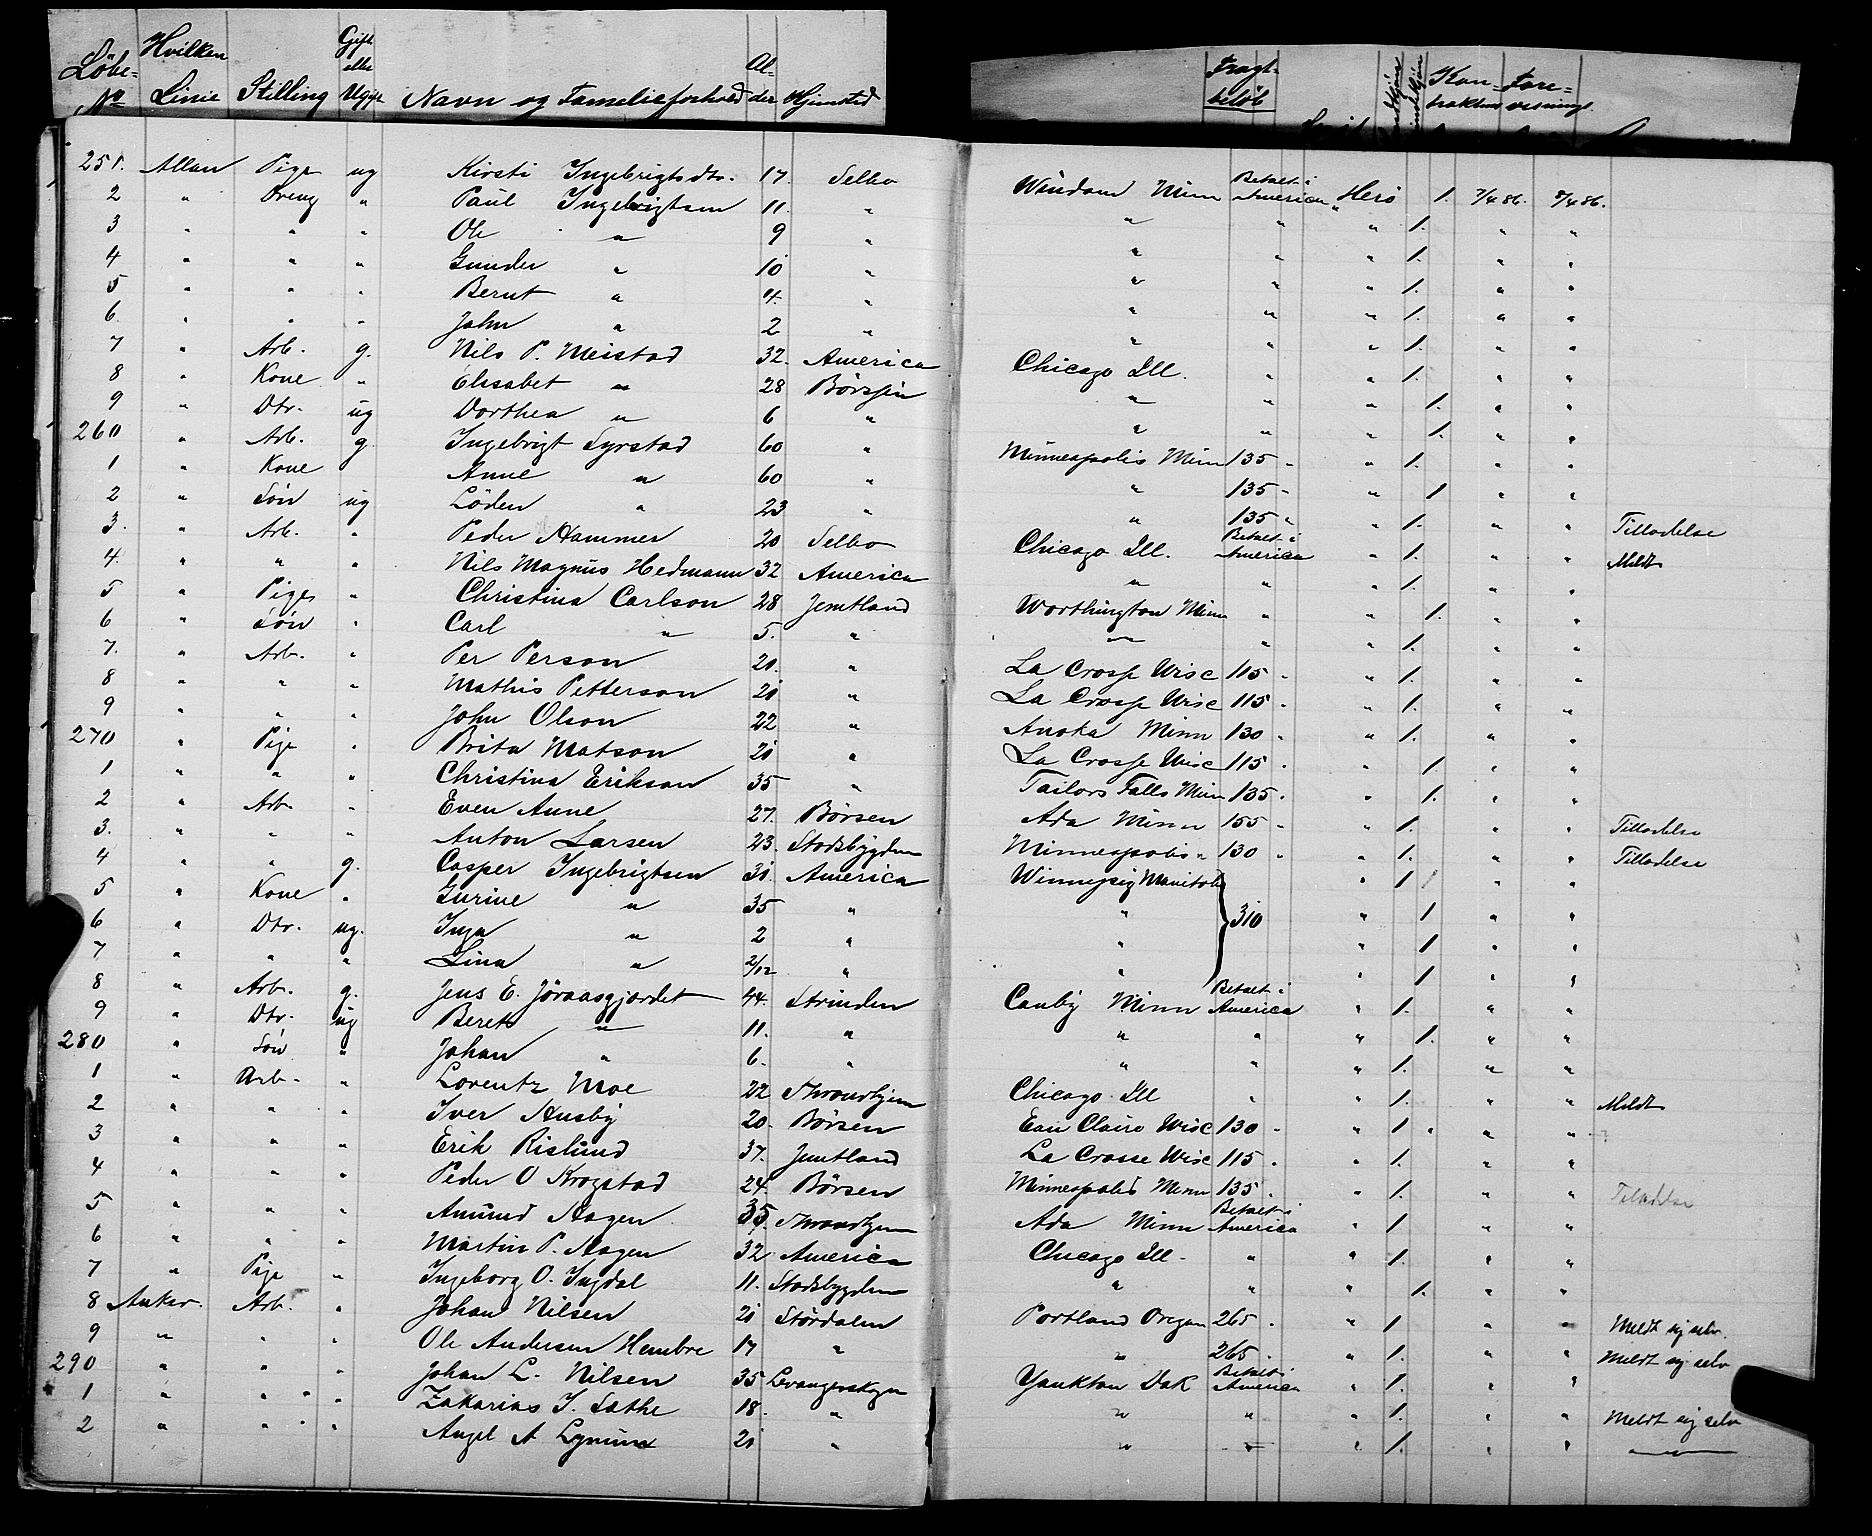 Löbe- No Hvilken Linie Stilling Gift eller Ugift Navn og Familieforhold Al- der Hjemsted Fragt- beløb Kon- trakten Fore- visning
251. Allan Pige ug Kirsti Ingebrigtsdtr. 17. Selbo Windom Minn Betalt i America Herö 1. 7/4 86. 8/4 86.
2 " Dreng " Paul Ingebrigtsen 11. " " " " 1. " "
3 " " " Ole " 9 " " " " 1. " "
4 " " " Gunder " 10 " " " " 1. " "
5 " " " Bernt " 4. " " " " 1. " "
6. " " " John " 2 " " " " 1. " "
7 " Arb. g. Nils P. Meistad 32. America Chicago Ill. " " 1. " "
8 " Kone " Elisabet " 28 Börsen " " " 1. " "
9 " Dtr. ug Dorthea " 6 " " " " 1. " "
260 " Arb. g. Ingebrigt Syrstad 60 " Minneapolis Minn 135 - " 1. " "
1 " Kone Anne " 60 " " 135 - " 1 " "
2 " Sön ug Löden " 23 " " 135 " " 1. " " Tilladelse
3. " Arb. " Peder Hammer 20 Selbo Chicago Ill. Betalt i America " 1. " " Meldt
4. " " " Nils Magnus Hedmann 32 America " " " 1. " "
5 " Pige " Christina Carlson 28 Jemtland Worthington Minn " " 1. " "
6 " Sön " Carl " 5. " " " " 1. " "
7. " Arb. " Per Person 21. " La Crosse Wisc 115 - " 1. " "
8 " " " Mathis Petterson 21 " La Crosse Wisc 115 - " 1. " "
9 " " " John Olson 22 " Anoka Minn 130 - " 1. " "
270 " Pige " Brita Matson 21 " La Crosse Wisc 115 - " 1. " "
1 " " " Christina Erikson 35 " Tailors Falls Minn 135 - " 1. " "
2 " Arb " Even Aune 27. Börsen Ada Minn 155 - " 1. " " Tilladelse
3. " " " Anton Larsen 23. Stadsbygden Minneapolis " 130 " " 1. " " Tilladelse
4 " " g. Casper Ingebrigtsen 31. America Winnipeg Manitob " 1 " "
5 " Kone " Gurine " 35 " " 310 " 1 " "
6 " Dtr. ug. Inga " 2 " " " 1 " "
7 " " " Lina " 2/12 " " " 1 " "
8 " Arb. g. Jens E. Jöraasgjerdet 44. Strinden Canby Minn Betalt i America " 1. " "
9 " Dtr. ug Beret " 11. " " " " 1. " "
280 " Sön " Johan " 6. " " " " 1. " "
1 " Arb. " Lorentz Moe 22 Throndhjem Chicago Ill " " 1. " " Meldt
2 " " " Iver Husby 20. Börsen Eau Claire Wisc 130 - " 1 " " "
3 " " " Erik Rislund 37. Jemtland La Crosse Wisc 115 - " 1. " "
4 " " " Peder O Krogstad 24. Börsen Minneapolis Minn 135 - " 1. " " Tilladelse
5 " " " Amund Hagen 35 Throndhjem Ada Minn Betalt i America " 1 " "
6 " " " Martin P. Hagen 32 America Chicago Ill. " " 1. " "
7 " Pige " Ingeborg O. Ingdal 11. Stadsbygden " " " 1. " "
8 Anker. Arb. " Johan Nilsen 21 Stördalen Portland Oregon 265 - " 1 " " Meldt sig selv.
9 " " " Ole Andersen Hembre 17 " " 265 - " 1. " " Meldt sig selv
290 " " " Johan L. Nilsen 35 Levangerskogn Yankton Dak Betalt i America " 1. " "
1 " " " Zakarias J. Sathe 18. " " " " 1. " " Meldt sig selv
2 " " " Angel A 21 " " " " 1. " " "